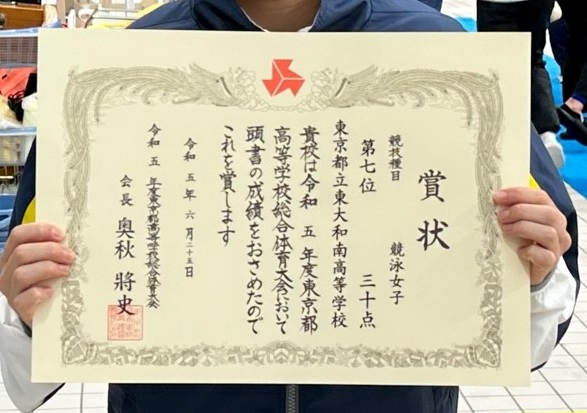 賞状
競技種目　競泳女子
第七位　三十点
東京都立東大和南高等学校
貴校は令和 五 年度東京都
高等学校総合体育大会において
頭書の成績をおさめたので
これを賞します
令和 五 年 六 月 二十五 日
令和 五 年度東京都高等学校総合体育大会
会長 奥秋 將史